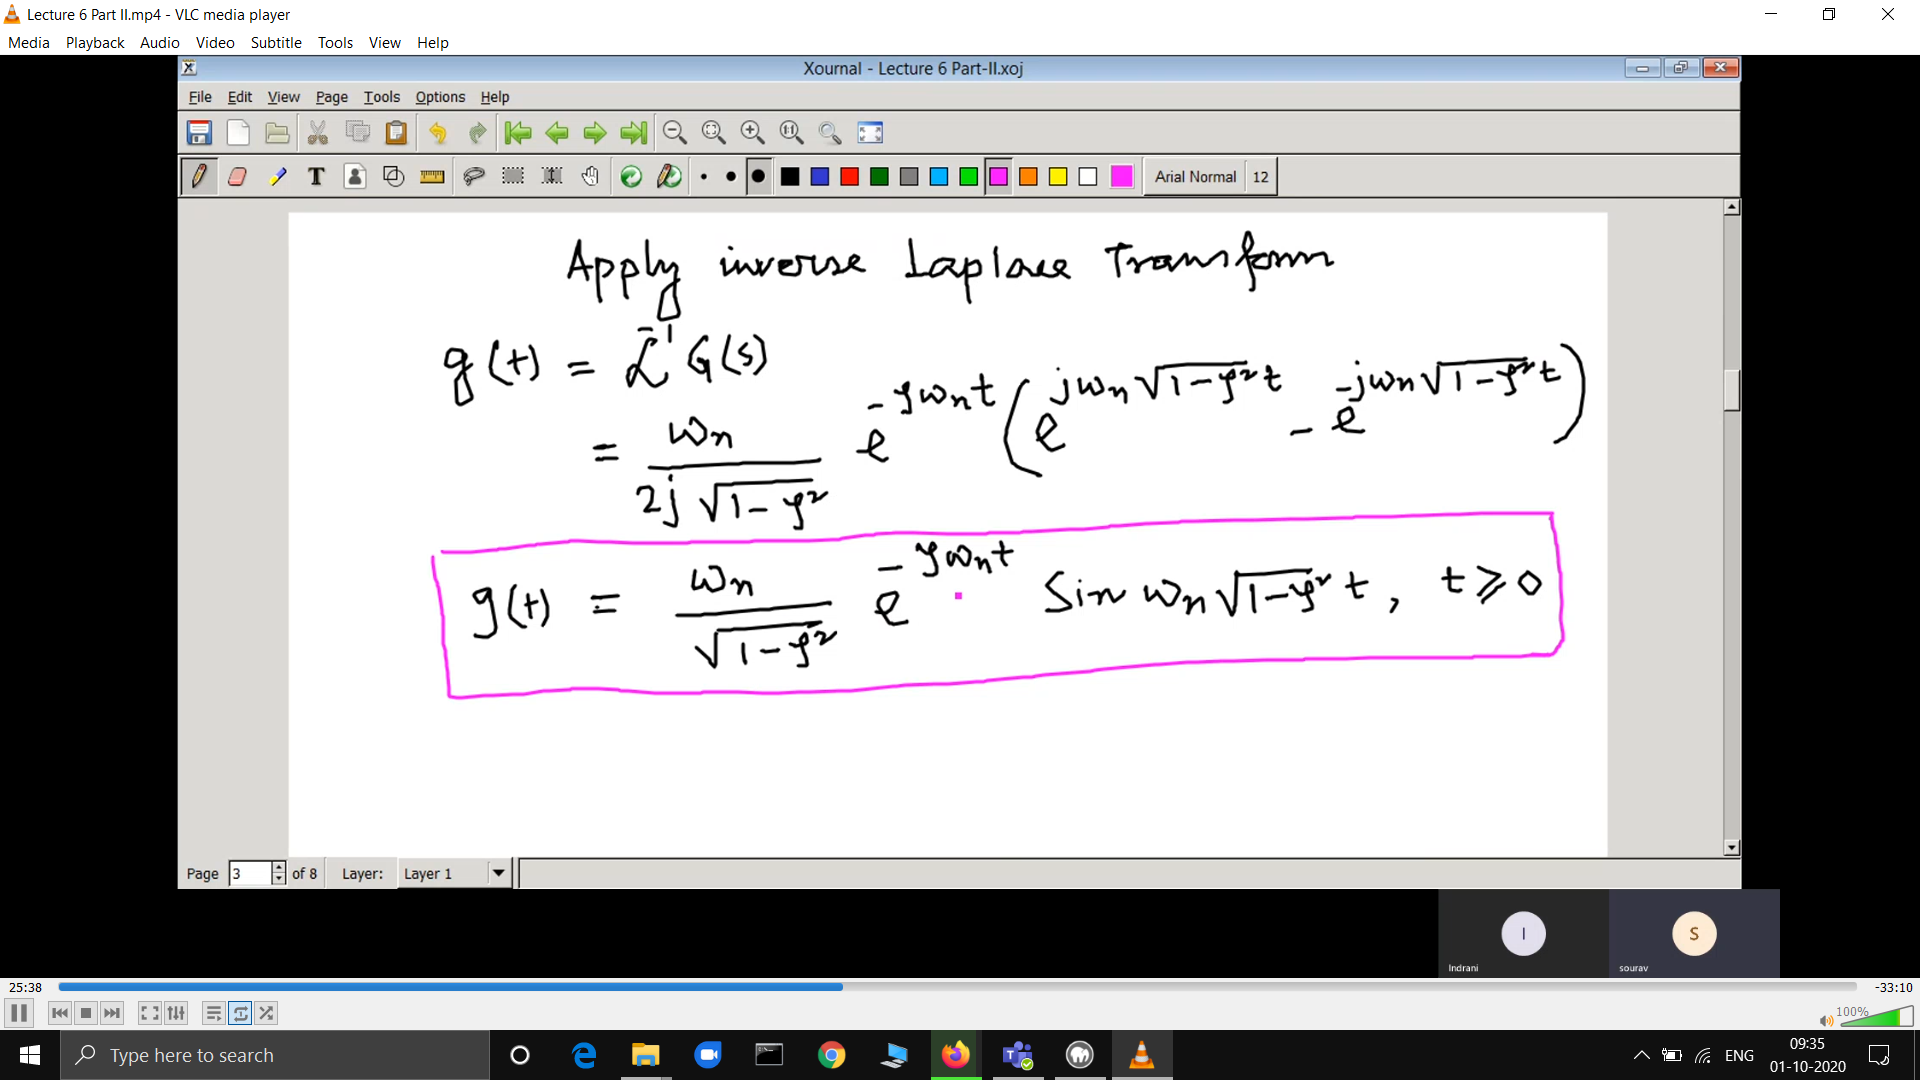 Lecture 6 Part II.mp4 - VLC media player
Media Playback Audio Video Subtitle Tools View Help
Xournal - Lecture 6 Part-II.xoj
File Edit View Page Tools Options Help
Arial Normal 12
Apply inverse Laplace Transform
g(t) = ℒ⁻¹ G(s)
= ωn / (2j √(1-ζ²)) e^(-ζωnt) (e^(jωn√(1-ζ²)t) - e^(-jωn√(1-ζ²)t))
g(t) = ωn / √(1-ζ²) e^(-ζωnt) Sin ωn√(1-ζ²) t, t ⩾ 0
Page 3 of 8 Layer: Layer 1
I S
Indrani sourav
25:38 -33:10
100%
Type here to search
ENG 09:35
01-10-2020